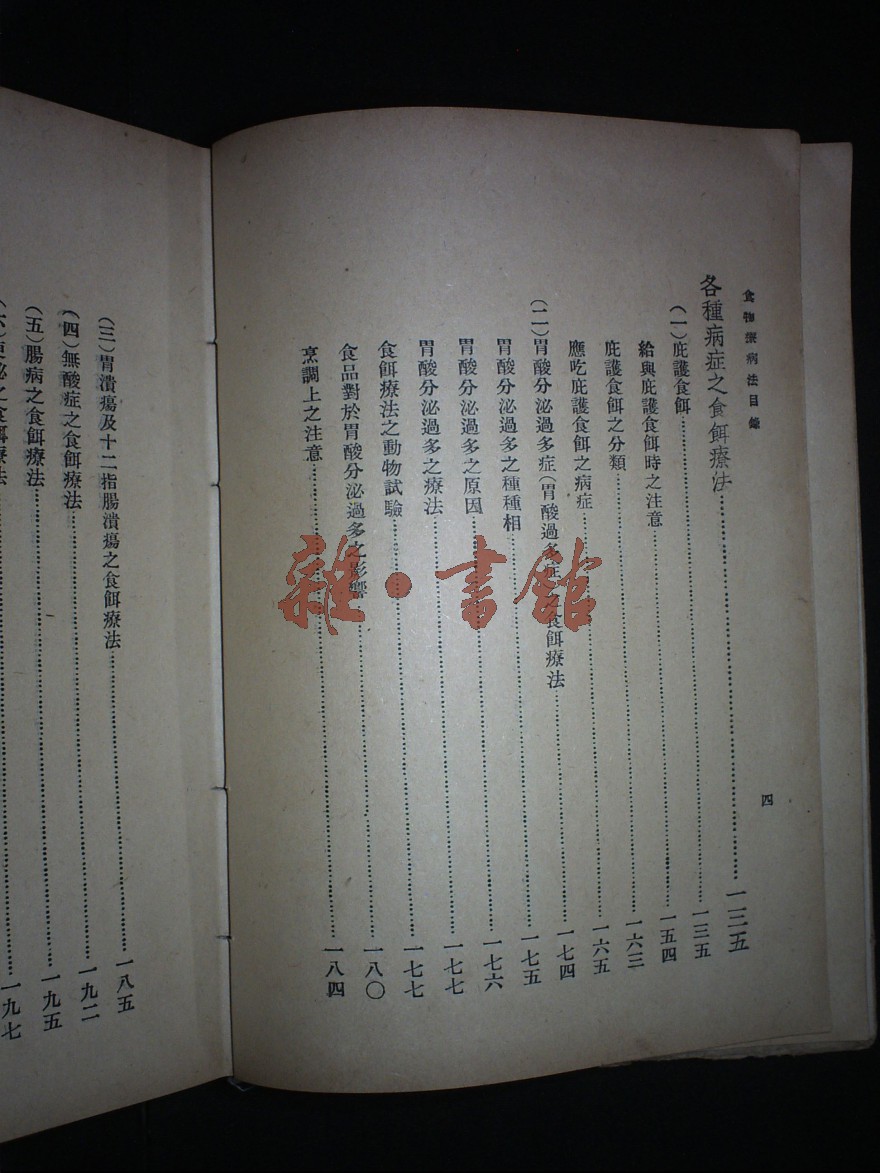 食物療病法目錄
四
各種病症之食餌療法……一三五
(一)庇護食餌……一三五
給與庇護食餌時之注意……一五四
庇護食餌之分類……一六三
應吃庇護食餌之病症……一六五
(二)胃酸分泌過多症(胃酸過多症)之食餌療法……一七四
胃酸分泌過多之種種相……一七五
胃酸分泌過多之原因……一七六
胃酸分泌過多之療法……一七七
食餌療法之動物試驗……一七七
食品對於胃酸分泌過多之影響……一八〇
烹調上之注意……一八四
(三)胃潰瘍及十二指腸潰瘍之食餌療法……一八五
(四)無酸症之食餌療法……一九二
(五)腸病之食餌療法……一九五
(六)便秘之食餌療法……一九七
雜·書館